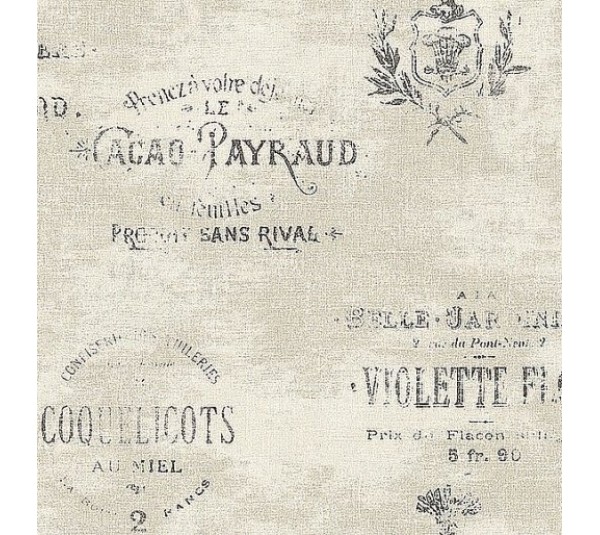 Prenez à votre
LE
CACAO PAYRAUD
en feuilles
PRODUIT SANS RIVAL
A LA
BELLE JARDINI
2 rue du Pont-Neuf 2
VIOLETTE
Prix du Flacon
5 fr. 90
CONFISERIE DES TUILERIES
COQUELICOTS
AU MIEL
2